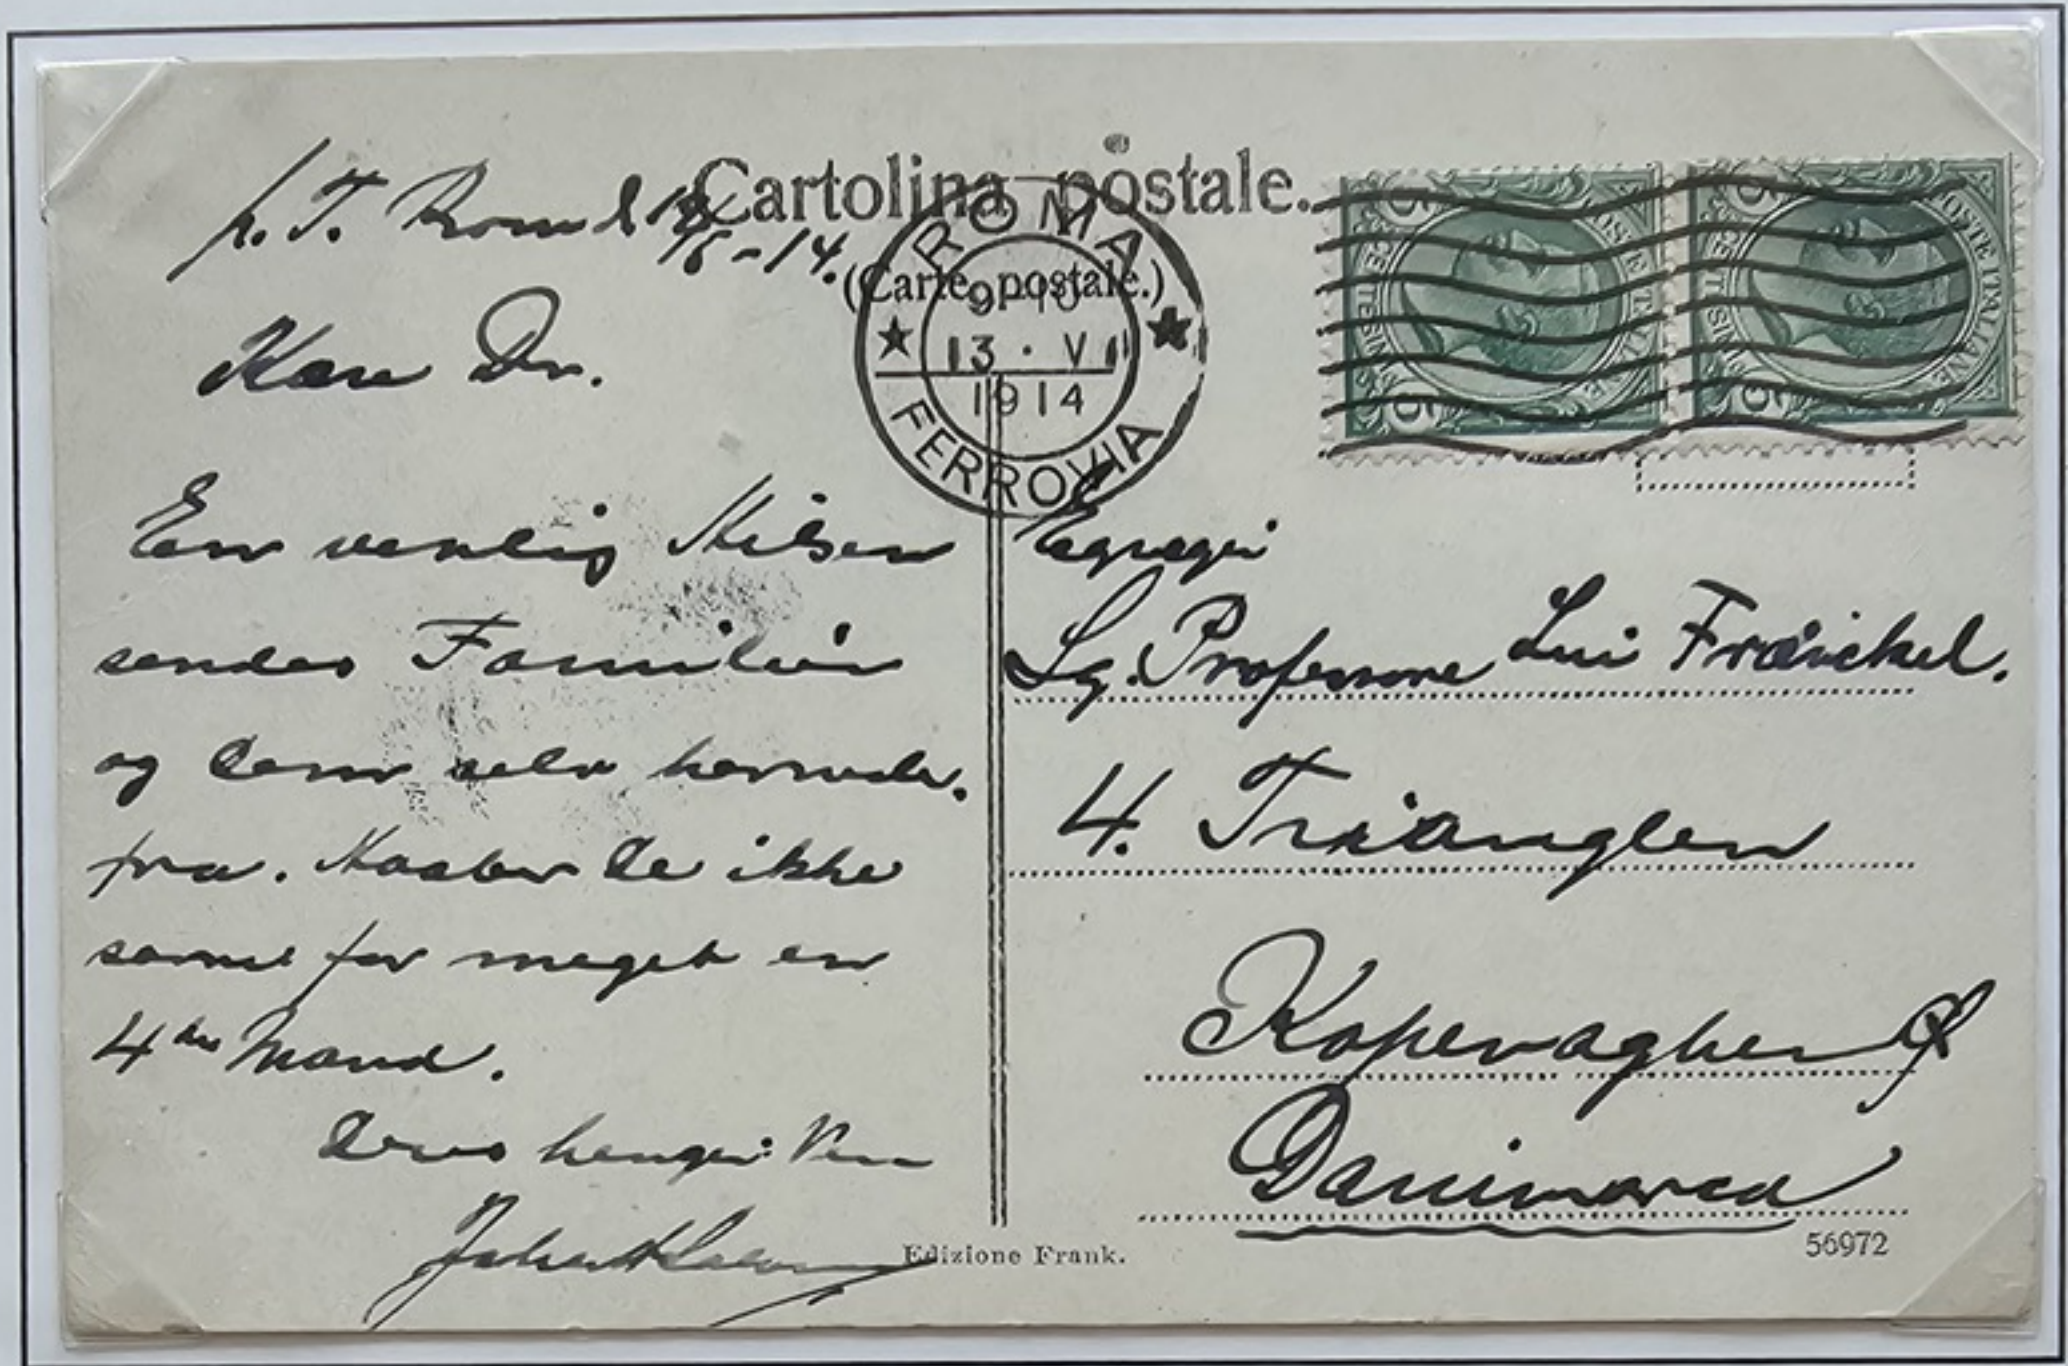 Cartolina postale.
(Carte postale.)
p. T. Rom d 12/5-14.
ROMA
9-10
13 · V
1914
FERROVIA
POSTE ITALIANE
CENTESIMI 5
POSTE ITALIANE
CENTESIMI 5
Kære Dr.
En venlig Hilsen
sendes Familien
og Dem selv hernede.
fra. Haaber De ikke
savner for meget en
4de Mand.
Deres hengivne Ven
Egregi
Sg. Professore Lui Fränckel.
4. Trianglen
Kopenaghen Ø
Danimarca
Edizione Frank.
56972